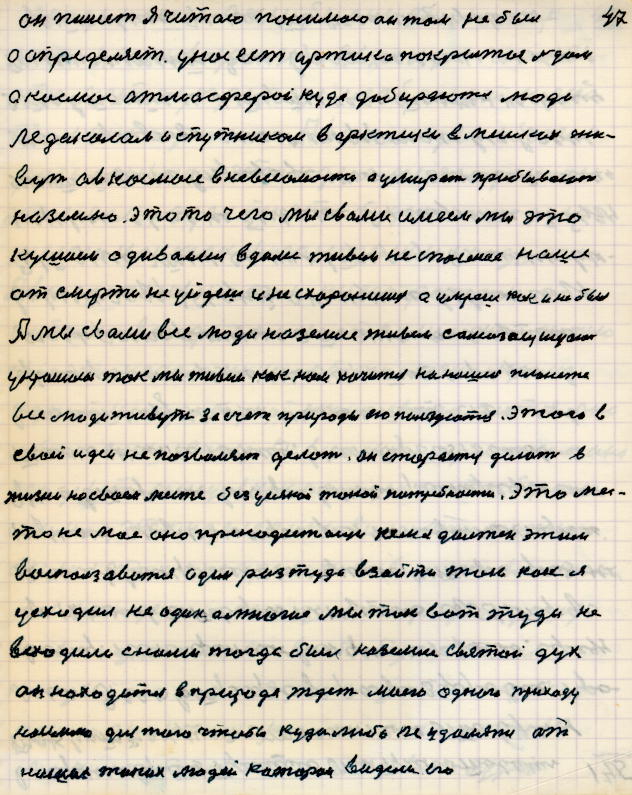 он пишет Я читаю понимаю он там не был 47
о определяет. у нас ест артика покрытое льдом
а космос атмасферой куда добираются люди
ледаколам и спутником в арктики в мешках жи-
вут а в космосе в невесомости а умират прибывают
на землю. это то чего мы с вами имеем мы это
кушаем одиваемся в доме живем не спасемся наше
от смерти не уйдеш и не схоронишся а умреш как и не был
А мы с вами все люди на земле живем
так мы живем как нам хочется на нашей планете
все люди живут за счет природы ею ползуются. Этого в
своей идеи не позваляет делат. он старается делат в
жизни на своем месте без усякой такой потребности. Это мес-
то не мое оно принадлежащи должен этим
воспользаватся один раз туда взайти так как я
усходил не один а многие мы так вот туда не
входили с нами тогда был на земле святой дух
он находится в природе ждет моего одного приходу
на землю для того чтобы куда либо не удаляти от
наших таких людей каторои видели его